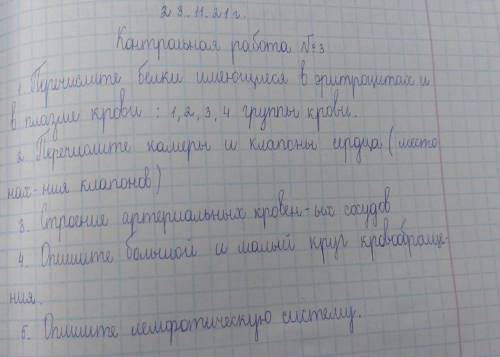 23.11.21г.
Контрольная работа №3
1. Перечислите белки имеющиеся в эритроцитах и
в плазме крови : 1, 2, 3, 4 группы крови.
2. Перечислите камеры и клапоны сердца (место
нах-ния клапонов)
3. Строение артериальных кровен-ых сосудов
4. Опишите большой и малый круг кровообраще-
ния.
5. Опишите лемфотическую систему.